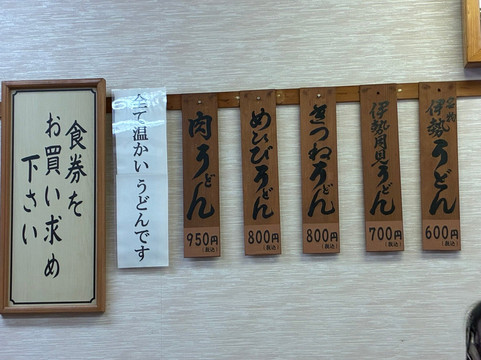 名物
伊勢うどん
600円
(税込)
伊勢月見うどん
700円
(税込)
きつねうどん
800円
(税込)
めひびうどん
800円
(税込)
肉うどん
950円
(税込)
全て温かいうどんです
食券を
お買い求め
下さい